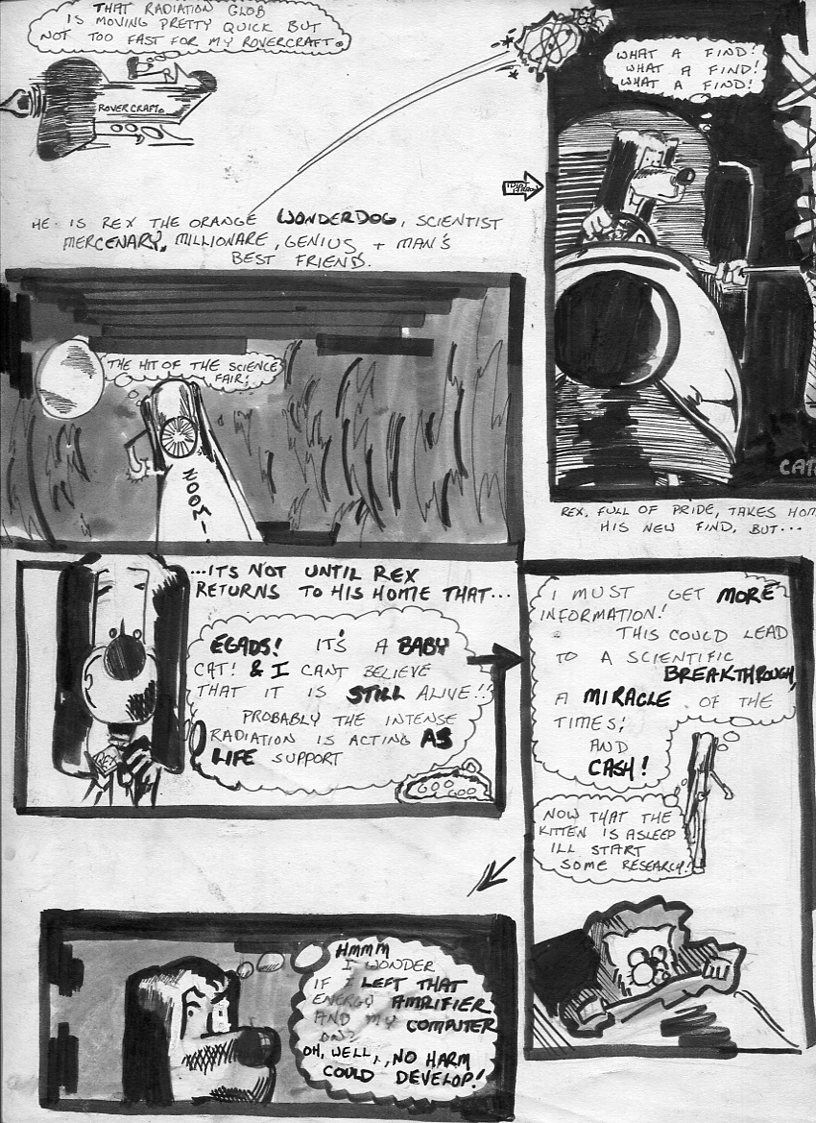 THAT RADIATION GLOB
IS MOVING PRETTY QUICK BUT
NOT TOO FAST FOR MY ROVERCRAFT.
ROVERCRAFT.
WHAT A FIND!
WHAT A FIND!
WHAT A FIND!
HE IS REX THE ORANGE WONDERDOG, SCIENTIST
MERCENARY, MILLIONARE, GENIUS + MAN'S
BEST FRIEND.
THE HIT OF THE SCIENCE
FAIR!
ZOOM!
REX, FULL OF PRIDE, TAKES HOM
HIS NEW FIND, BUT...
...ITS NOT UNTIL REX
RETURNS TO HIS HOME THAT...
EGADS! IT'S A BABY
CAT! & I CANT BELIEVE
THAT IT IS STILL ALIVE!!
PROBABLY THE INTENSE
RADIATION IS ACTING AS
LIFE SUPPORT
GOO
GOO
REX
I MUST GET MORE
INFORMATION!
THIS COULD LEAD
TO A SCIENTIFIC
BREAKTHROUGH,
A MIRACLE OF THE
TIMES;
AND
CASH!
NOW THAT THE
KITTEN IS ASLEEP
ILL START
SOME RESEARCH!
HMMM
I WONDER
IF I LEFT THAT
ENERGY AMPLIFIER
AND MY COMPUTER
ON?
OH, WELL,, NO HARM
COULD DEVELOP!